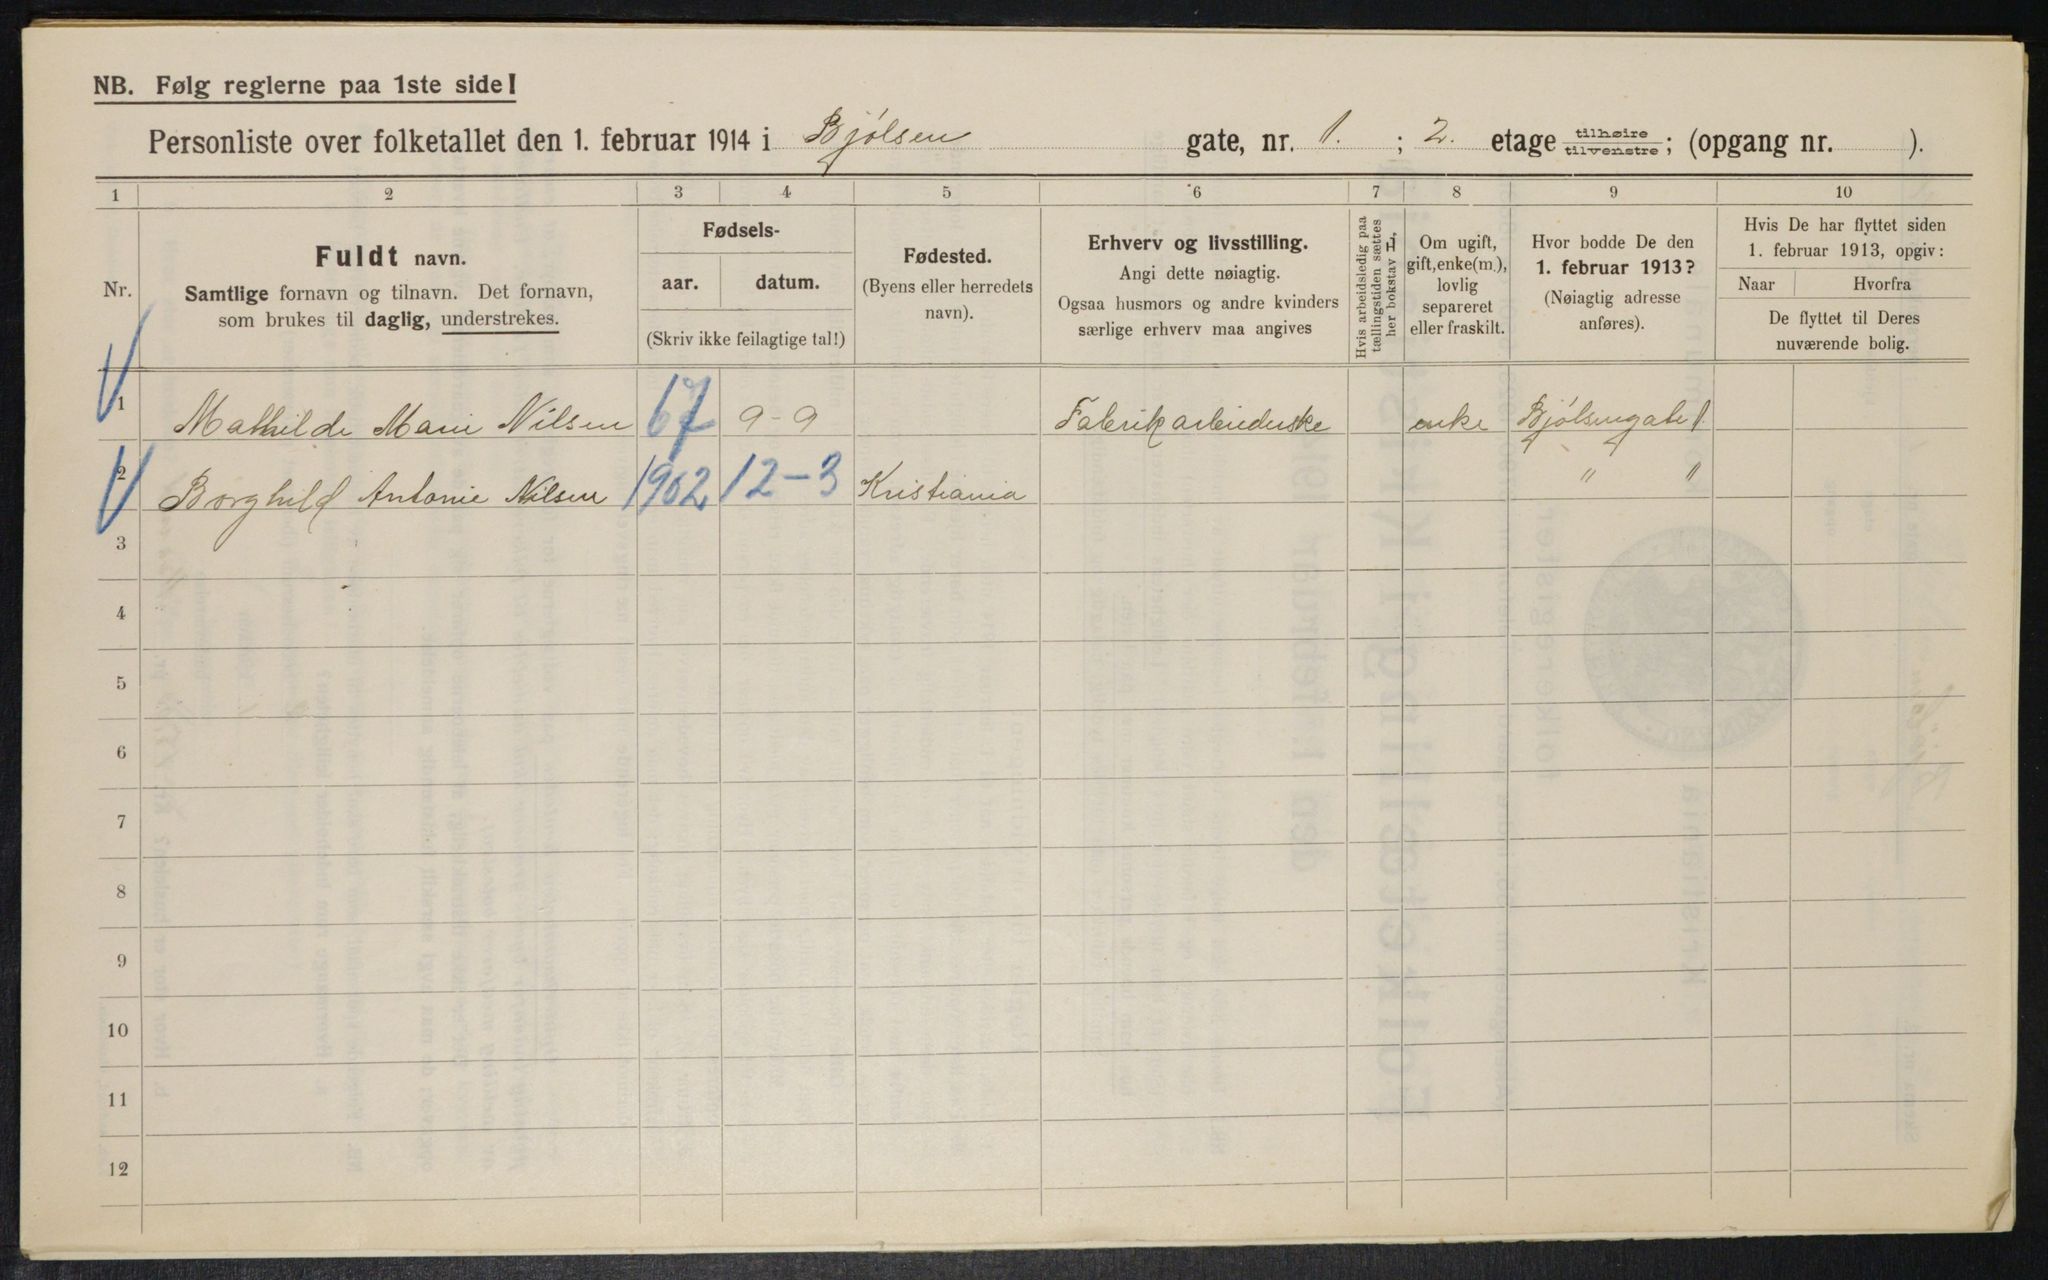 NB. Følg reglerne paa 1ste side!
Personliste over folketallet den 1. februar 1914 i Bjølsen gate, nr. 1. ; 2. etage tilhøire tilvenstre; (opgang nr. ).
1 2 3 4 5 6 7 8 9 10
Nr.
Fuldt navn.
Samtlige fornavn og tilnavn. Det fornavn,
som brukes til daglig, understrekes.
Fødsels-
aar. datum.
(Skriv ikke feilagtige tal!)
Fødested.
(Byens eller herredets
navn).
Erhverv og livsstilling.
Angi dette nøiagtig.
Ogsaa husmors og andre kvinders
særlige erhverv maa angives
Hvis arbeidsledig paa
tællingstiden sættes
her bokstav L,
Om ugift,
gift, enke(m.),
lovlig
separeret
eller fraskilt.
Hvor bodde De den
1. februar 1913?
(Nøiagtig adresse
anføres).
Hvis De har flyttet siden
1. februar 1913, opgiv:
Naar Hvorfra
De flyttet til Deres
nuværende bolig.
1 Mathilde Marie Nilsen 67 9-9 Fabrikarbeiderske enke Bjølsengate 1.
2 Borghild Antonie Nilsen 1902 12-3 Kristiania " "
3
4
5
6
7
8
9
10
11
12